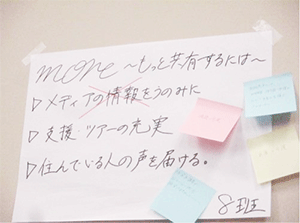 more ～もっと共有するには～
▷メディアの情報をうのみに
▷支援・ツアーの充実
▷住んでいる人の声を届ける。
8班